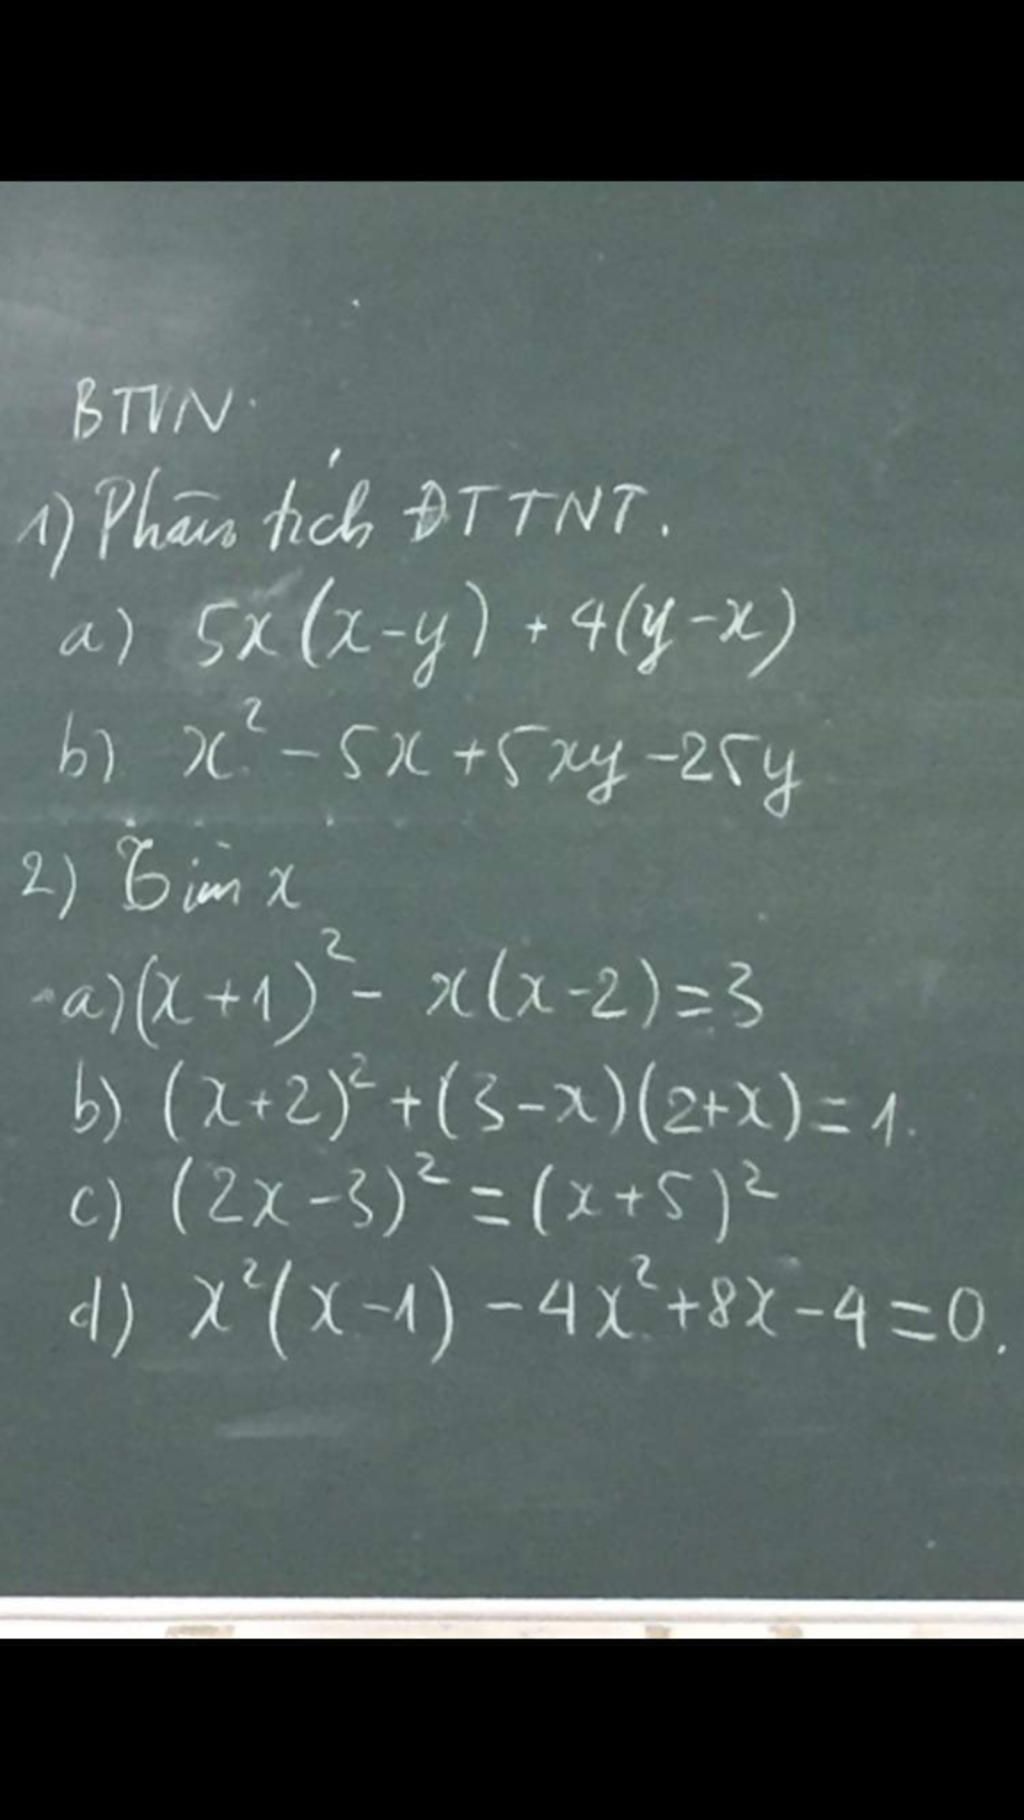 BTVN.
1) Phân tích ĐTTNT.
a) 5x(x-y) + 4(y-x)
b) x² - 5x + 5xy - 25y
2) Tìm x
a) (x+1)² - x(x-2) = 3
b) (x+2)² + (3-x)(2+x) = 1.
c) (2x-3)² = (x+5)²
d) x²(x-1) - 4x² + 8x - 4 = 0.